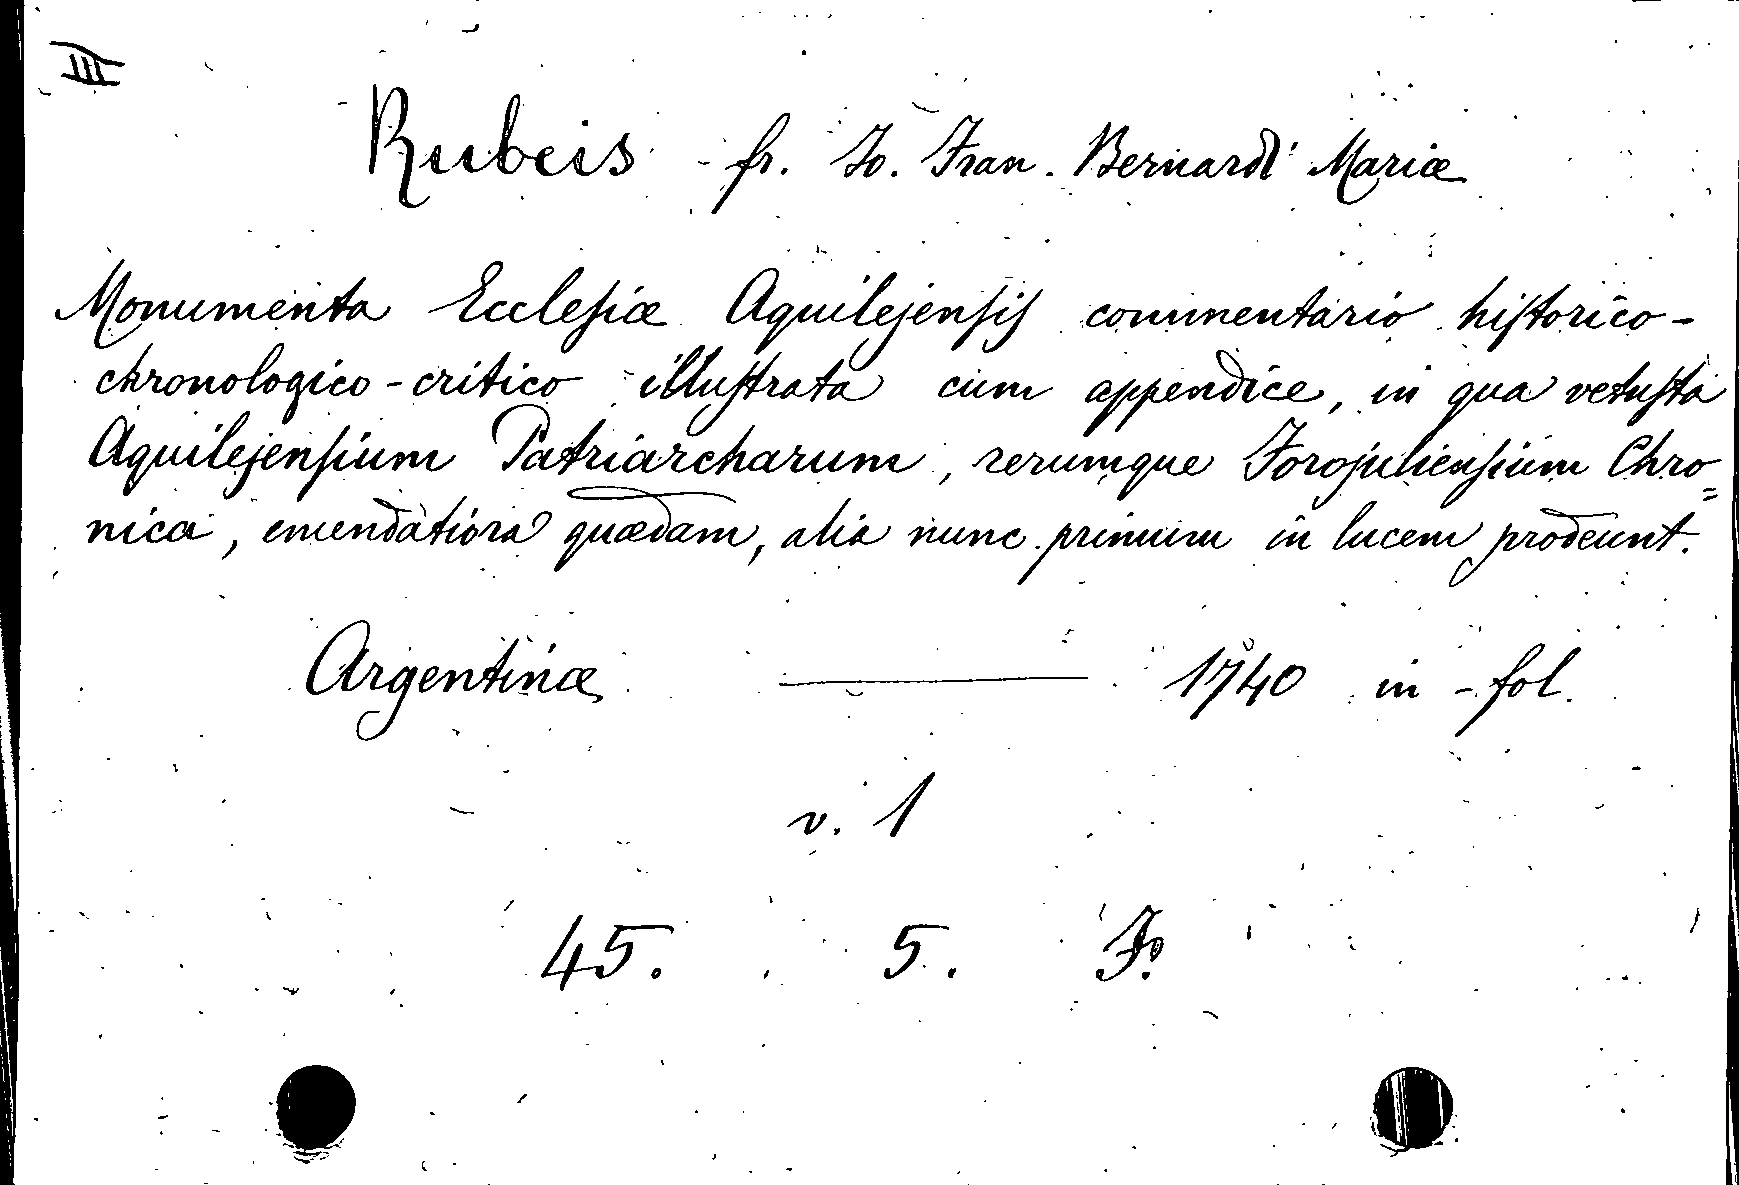 III
Rubeis - fr. Jo. Fran. Bernardi Mariæ
Monumenta Ecclesiæ Aquilejensis commentario historico-
chronologico-critico illustrata cum appendice, in qua vetusta
Aquilejensium Patriarcharum, rerumque Forojuliensium Chro=
nica, emendatiora quædam, alia nunc primum in lucem prodeunt.
Argentinæ ——— 1740 in-fol.
v. 1
45. 5. F.